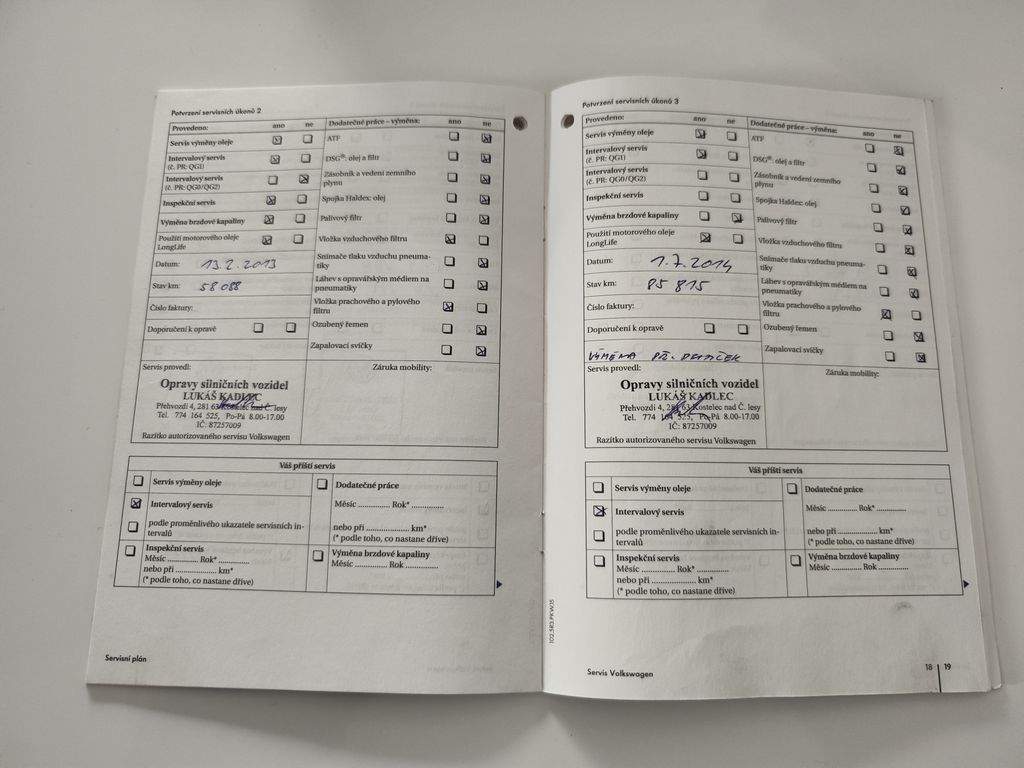 Potvrzení servisních úkonů 2
Provedeno: ano ne
Servis výměny oleje
Intervalový servis
(č. PR: QG1)
Intervalový servis
(č. PR: QG0/QG2)
Inspekční servis
Výměna brzdové kapaliny
Použití motorového oleje
LongLife
Datum: 13.2.2013
Stav km: 58 088
Číslo faktury:
Doporučení k opravě
Dodatečné práce – výměna: ano ne
ATF
DSG®: olej a filtr
Zásobník a vedení zemního
plynu
Spojka Haldex: olej
Palivový filtr
Vložka vzduchového filtru
Snímače tlaku vzduchu pneuma-
tiky
Láhev s opravářským médiem na
pneumatiky
Vložka prachového a pylového
filtru
Ozubený řemen
Zapalovací svíčky
Servis provedl:
Opravy silničních vozidel
LUKÁŠ KADLEC
Přehvozdí 4, 281 63 Kostelec nad Č. lesy
Tel. 774 164 525, Po-Pá 8.00-17.00
IČ: 87257009
Razítko autorizovaného servisu Volkswagen
Záruka mobility:
Váš příští servis
Servis výměny oleje
Intervalový servis
podle proměnlivého ukazatele servisních in-
tervalů
Inspekční servis
Měsíc .............. Rok* .............
nebo při .................... km*
(* podle toho, co nastane dříve)
Dodatečné práce
Měsíc .............. Rok* .............
nebo při .................... km*
(* podle toho, co nastane dříve)
Výměna brzdové kapaliny
Měsíc .............. Rok ..............
Servisní plán
Potvrzení servisních úkonů 3
Provedeno: ano ne
Servis výměny oleje
Intervalový servis
(č. PR: QG1)
Intervalový servis
(č. PR: QG0/QG2)
Inspekční servis
Výměna brzdové kapaliny
Použití motorového oleje
LongLife
Datum: 1.7.2014
Stav km: 85 815
Číslo faktury:
Doporučení k opravě
VÝMĚNA PŘ. DESTIČEK
Dodatečné práce – výměna: ano ne
ATF
DSG®: olej a filtr
Zásobník a vedení zemního
plynu
Spojka Haldex: olej
Palivový filtr
Vložka vzduchového filtru
Snímače tlaku vzduchu pneuma-
tiky
Láhev s opravářským médiem na
pneumatiky
Vložka prachového a pylového
filtru
Ozubený řemen
Zapalovací svíčky
Servis provedl:
Opravy silničních vozidel
LUKÁŠ KADLEC
Přehvozdí 4, 281 63 Kostelec nad Č. lesy
Tel. 774 164 525, Po-Pá 8.00-17.00
IČ: 87257009
Razítko autorizovaného servisu Volkswagen
Záruka mobility:
Váš příští servis
Servis výměny oleje
Intervalový servis
podle proměnlivého ukazatele servisních in-
tervalů
Inspekční servis
Měsíc .............. Rok* .............
nebo při .................... km*
(* podle toho, co nastane dříve)
Dodatečné práce
Měsíc .............. Rok* .............
nebo při .................... km*
(* podle toho, co nastane dříve)
Výměna brzdové kapaliny
Měsíc .............. Rok ..............
102.5R3.PKW.15
Servis Volkswagen
18 | 19